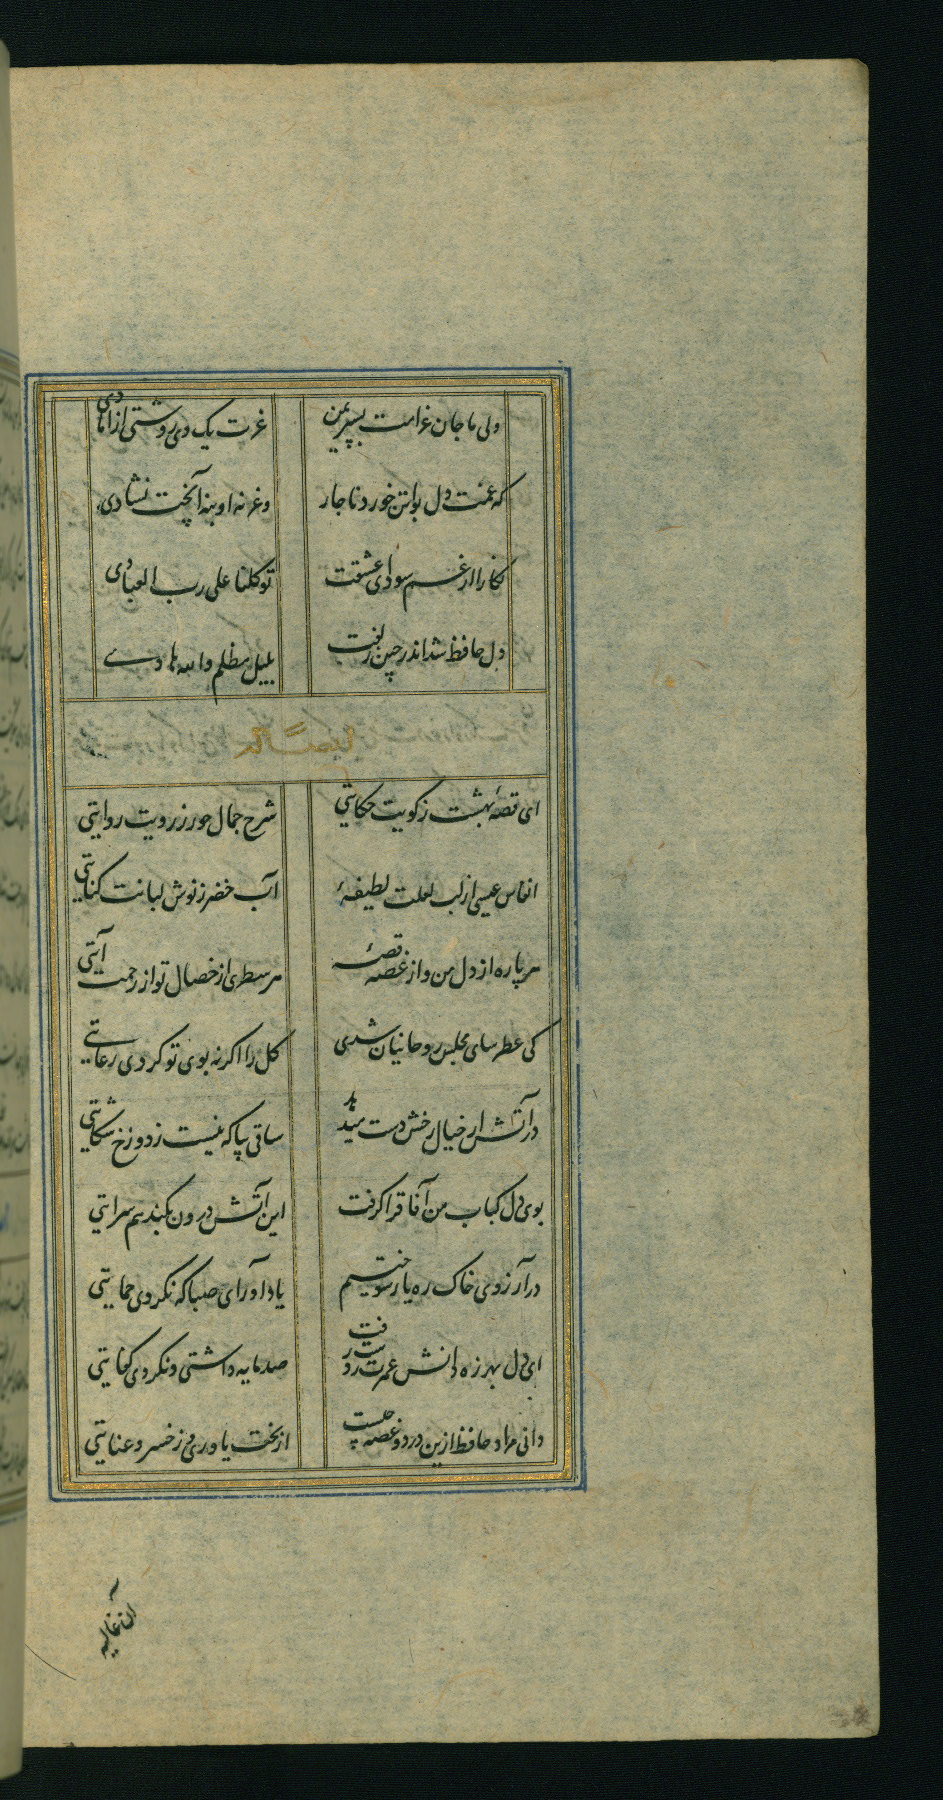 ولی ما جان غرامت بسپریمن
غرت یک وی روشتی از امادی
که غمت دل بواتن خورد ناچار
وغرنه اوبنه آنچت نشادی
نکارا از غم سودای عشقت
توکلنا علی رب العبادی
دل حافظ شد اندر چین زلفت
بلیل مظلم والله هادے
ایضا له
ای قصهٔ بهشت ز کویت حکایتی
شرح جمال حور ز رویت روایتی
انفاس عیسی از لب لعلت لطیفهٔ
آب خضر ز نوش لبانت کنایتی
هر پاره از دل من و از غصه قصهٔ
هر سطری از خصال تو از رحمت آیتی
کی عطر سای مجلس روحانیان شدی
کل را اکر نه بوی تو کردی رعایتے
در آتش ار خیال رخش دست میدهد
ساقی بیا که نیست ز دوزخ شکایتی
بوی دل کباب من آفاق را کرفت
این آتش درون بکند هم سرایتی
در آرزوی خاک ره یار سوختیم
یاد آور ای صبا که نکردی حمایتی
ای دل بهرزه دانش عمرت ز دست رفت
صد مایه داشتی و نکردی کفایتی
دانی مراد حافظ ازین درد و غصه چیست
از بخت یاوری و ز خسرو عنایتی
آن غالیه